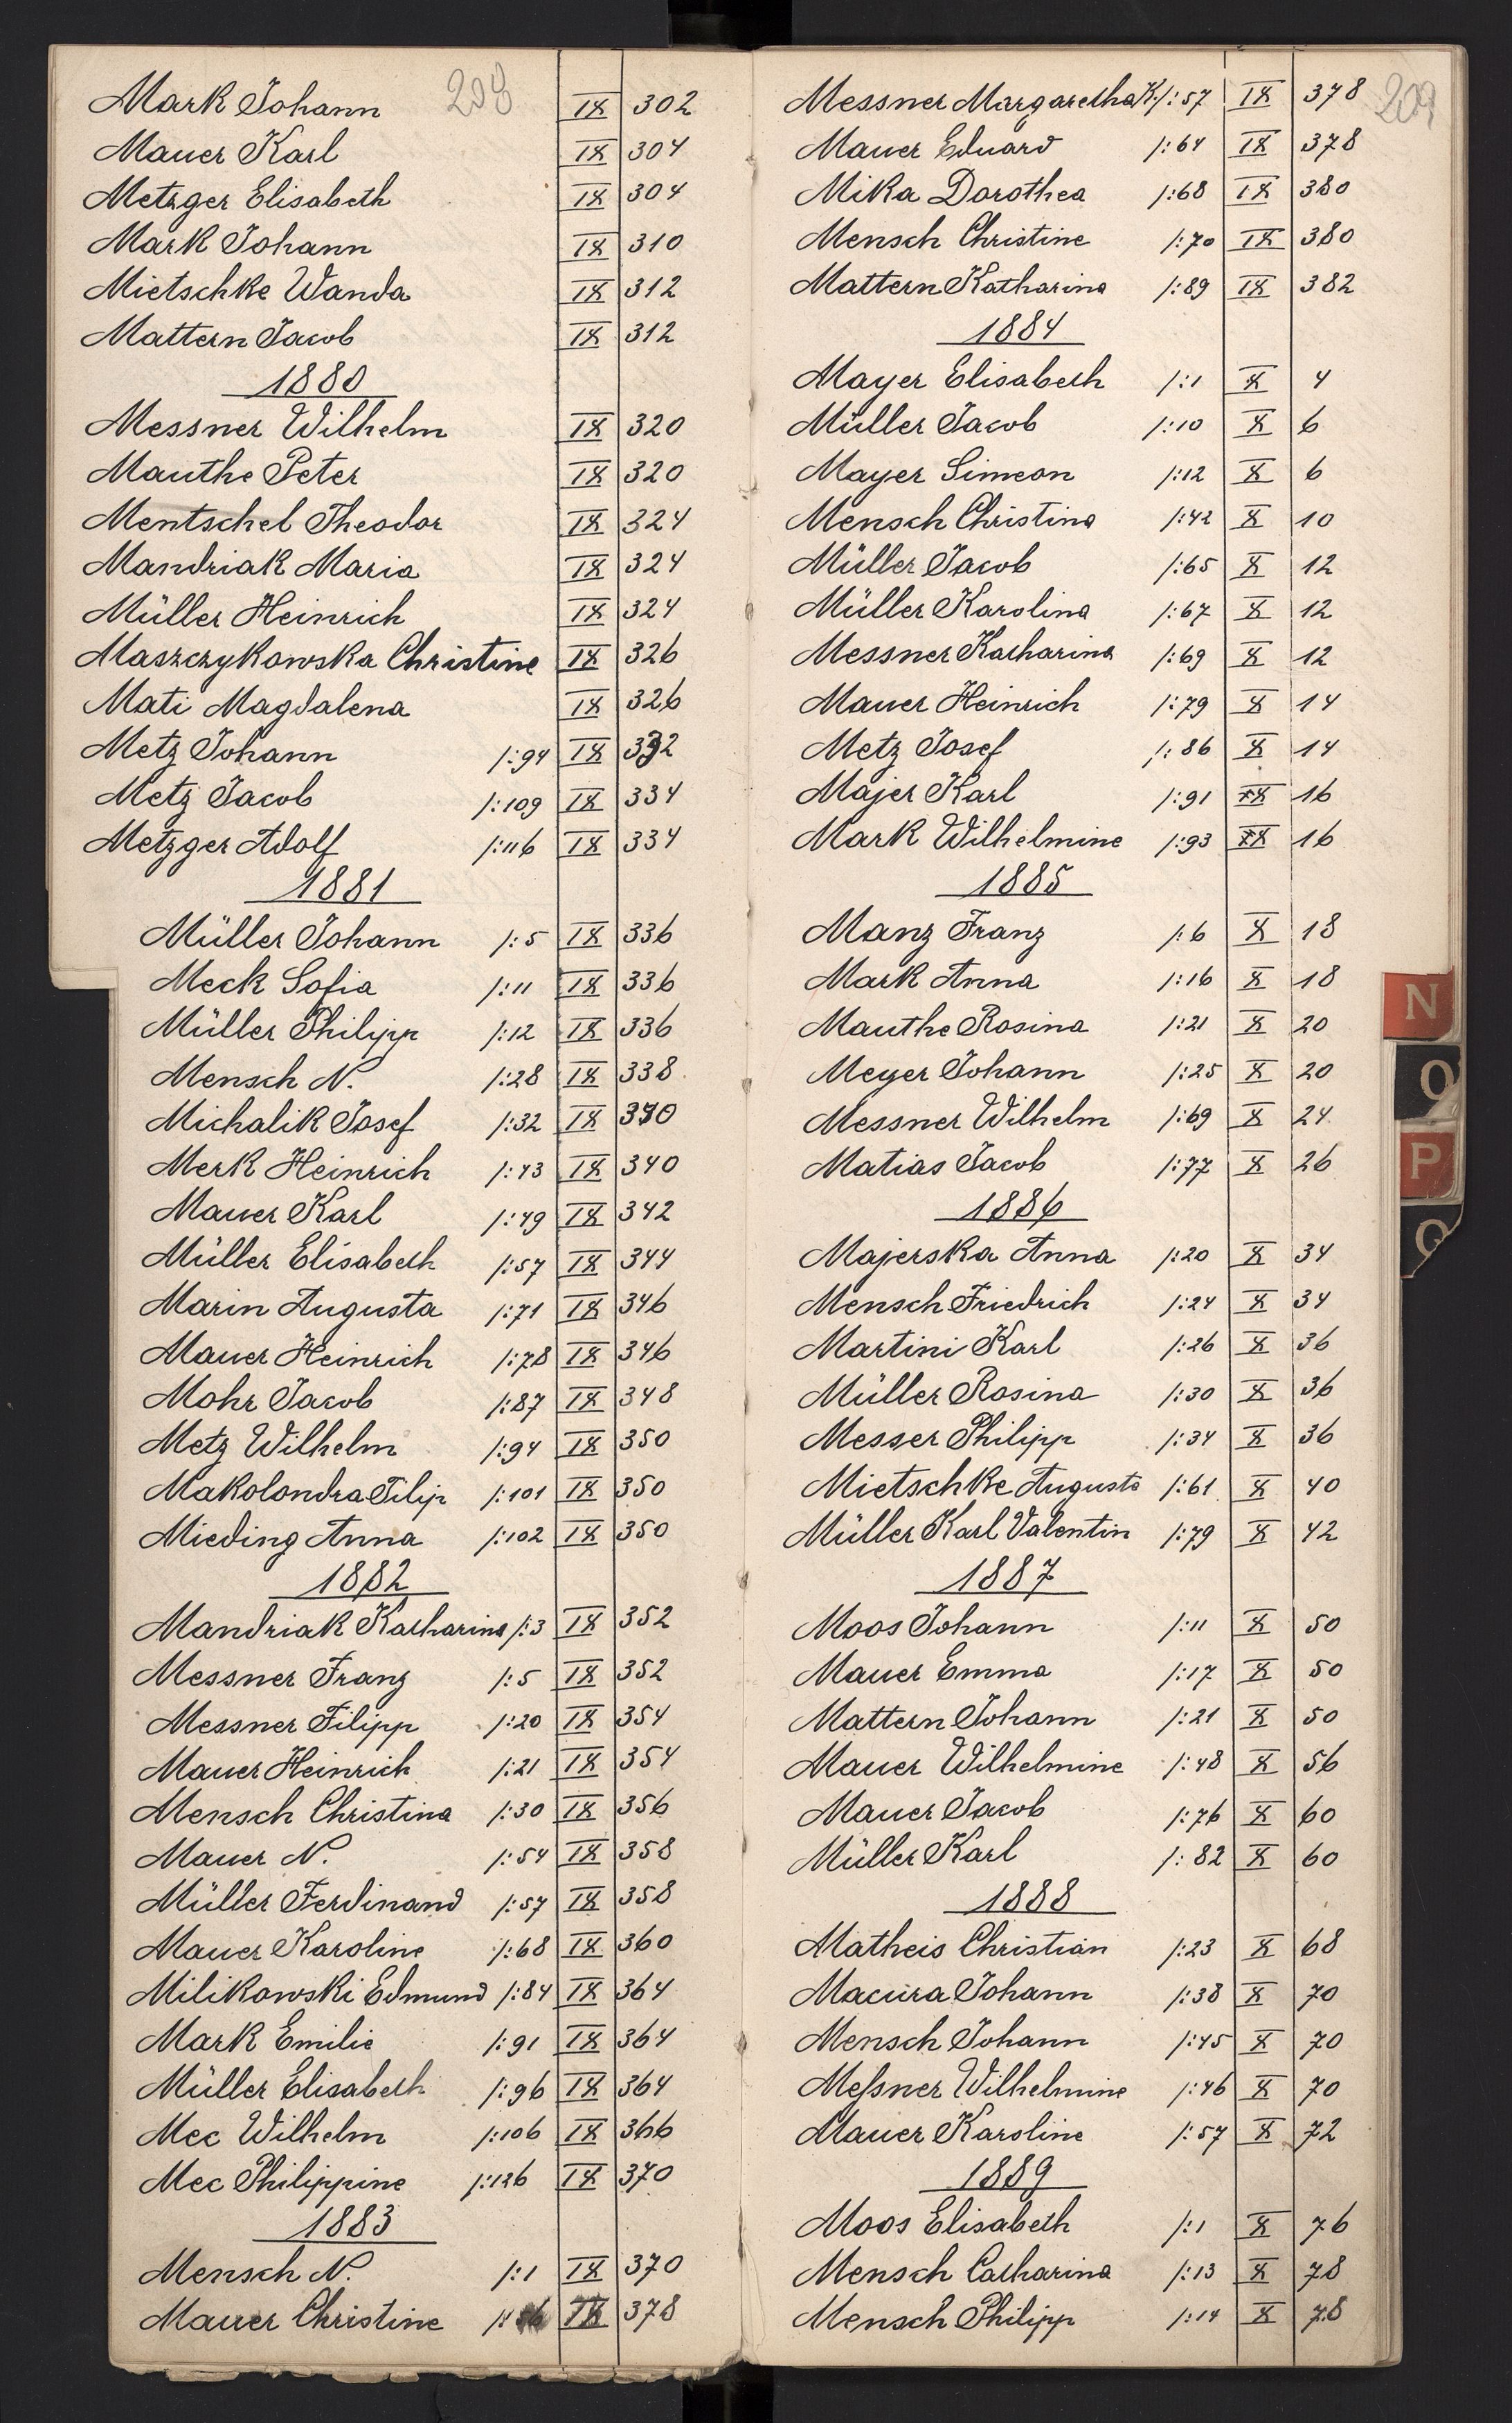 208
Mark Johann IX 302
Mauer Karl IX 304
Metzger Elisabeth IX 304
Mark Johann IX 310
Mietschke Wanda IX 312
Mattern Jacob IX 312
1880
Messner Wilhelm IX 320
Mauthe Peter IX 320
Mentschel Theodor IX 324
Mandriak Maria IX 324
Müller Heinrich IX 324
Maszczykowska Christine IX 326
Mati Magdalena IX 326
Metz Johann /:94 IX 332
Metz Jacob /:109 IX 334
Metzger Adolf /:116 IX 334
1881
Müller Johann /:5 IX 336
Meck Sofia /:11 IX 336
Müller Philipp /:12 IX 336
Mensch N. /:28 IX 338
Michalik Josef /:32 IX
Merk Heinrich /:43 IX 340
Mauer Karl /:49 IX 342
Müller Elisabeth /:57 IX 344
Marin Augusta /:71 IX 346
Mauer Heinrich /:78 IX 346
Mohr Jacob /:87 IX 348
Metz Wilhelm /:94 IX 350
Makolondra Filip /:101 IX 350
Mieding Anna /:102 IX 350
1882
Mandriak Katharina /:3 IX 352
Messner Franz /:5 IX 352
Messner Filipp /:20 IX 354
Mauer Heinrich /:21 IX 354
Mensch Christina /:30 IX 356
Mauer N. /:54 IX 358
Müller Ferdinand /:57 IX 358
Mauer Karoline /:68 IX 360
Milikowski Edmund /:84 IX 364
Mark Emilie /:91 IX 364
Müller Elisabeth /:96 IX 364
Mec Wilhelm /:106 IX 366
Mec Philippine /:126 IX 370
1883
Mensch N. /:1 IX 370
Mauer Christine IX 378
209
Messner Margaretha K. /:57 IX 378
Mauer Eduard /:64 IX 378
Mika Dorothea /:68 IX 380
Mensch Christine /:70 IX 380
Mattern Katharina /:89 IX 382
1884
Mayer Elisabeth /:1 X 4
Müller Jacob /:10 X 6
Mayer Simeon /:12 X 6
Mensch Christina /:42 X 10
Müller Jacob /:65 X 12
Müller Karolina /:67 X 12
Messner Katharina /:69 X 12
Mauer Heinrich /:79 X 14
Metz Josef /:86 X 14
Majer Karl /:91 X 16
Mark Wilhelmine /:93 X 16
1885
Manz Franz /:6 X 18
Mark Anna /:16 X 18
Mauthe Rosina /:21 X 20
Meyer Johann /:25 X 20
Messner Wilhelm /:69 X 24
Matias Jacob /:77 X 26
1886
Majerska Anna /:20 X 34
Mensch Friedrich /:24 X 34
Martini Karl /:26 X 36
Müller Rosina /:30 X 36
Messer Philipp /:34 X 36
Mietschke Augusta /:61 X 40
Müller Karl Valentin /:79 X 42
1887
Moos Johann /:11 X 50
Mauer Emma /:17 X 50
Mattern Johann /:21 X 50
Mauer Wilhelmine /:48 X 56
Mauer Jacob /:76 X 60
Müller Karl /:82 X 60
1888
Matheis Christian /:23 X 68
Macura Johann /:38 X 70
Mensch Johann /:45 X 70
Meſsner Wilhelmine /:46 X 70
Mauer Karoline /:57 X 72
1889
Moos Elisabeth /:1 X 76
Mensch Catharina /:13 X 78
Mensch Philipp /:14 X 78
N
O
P
Q